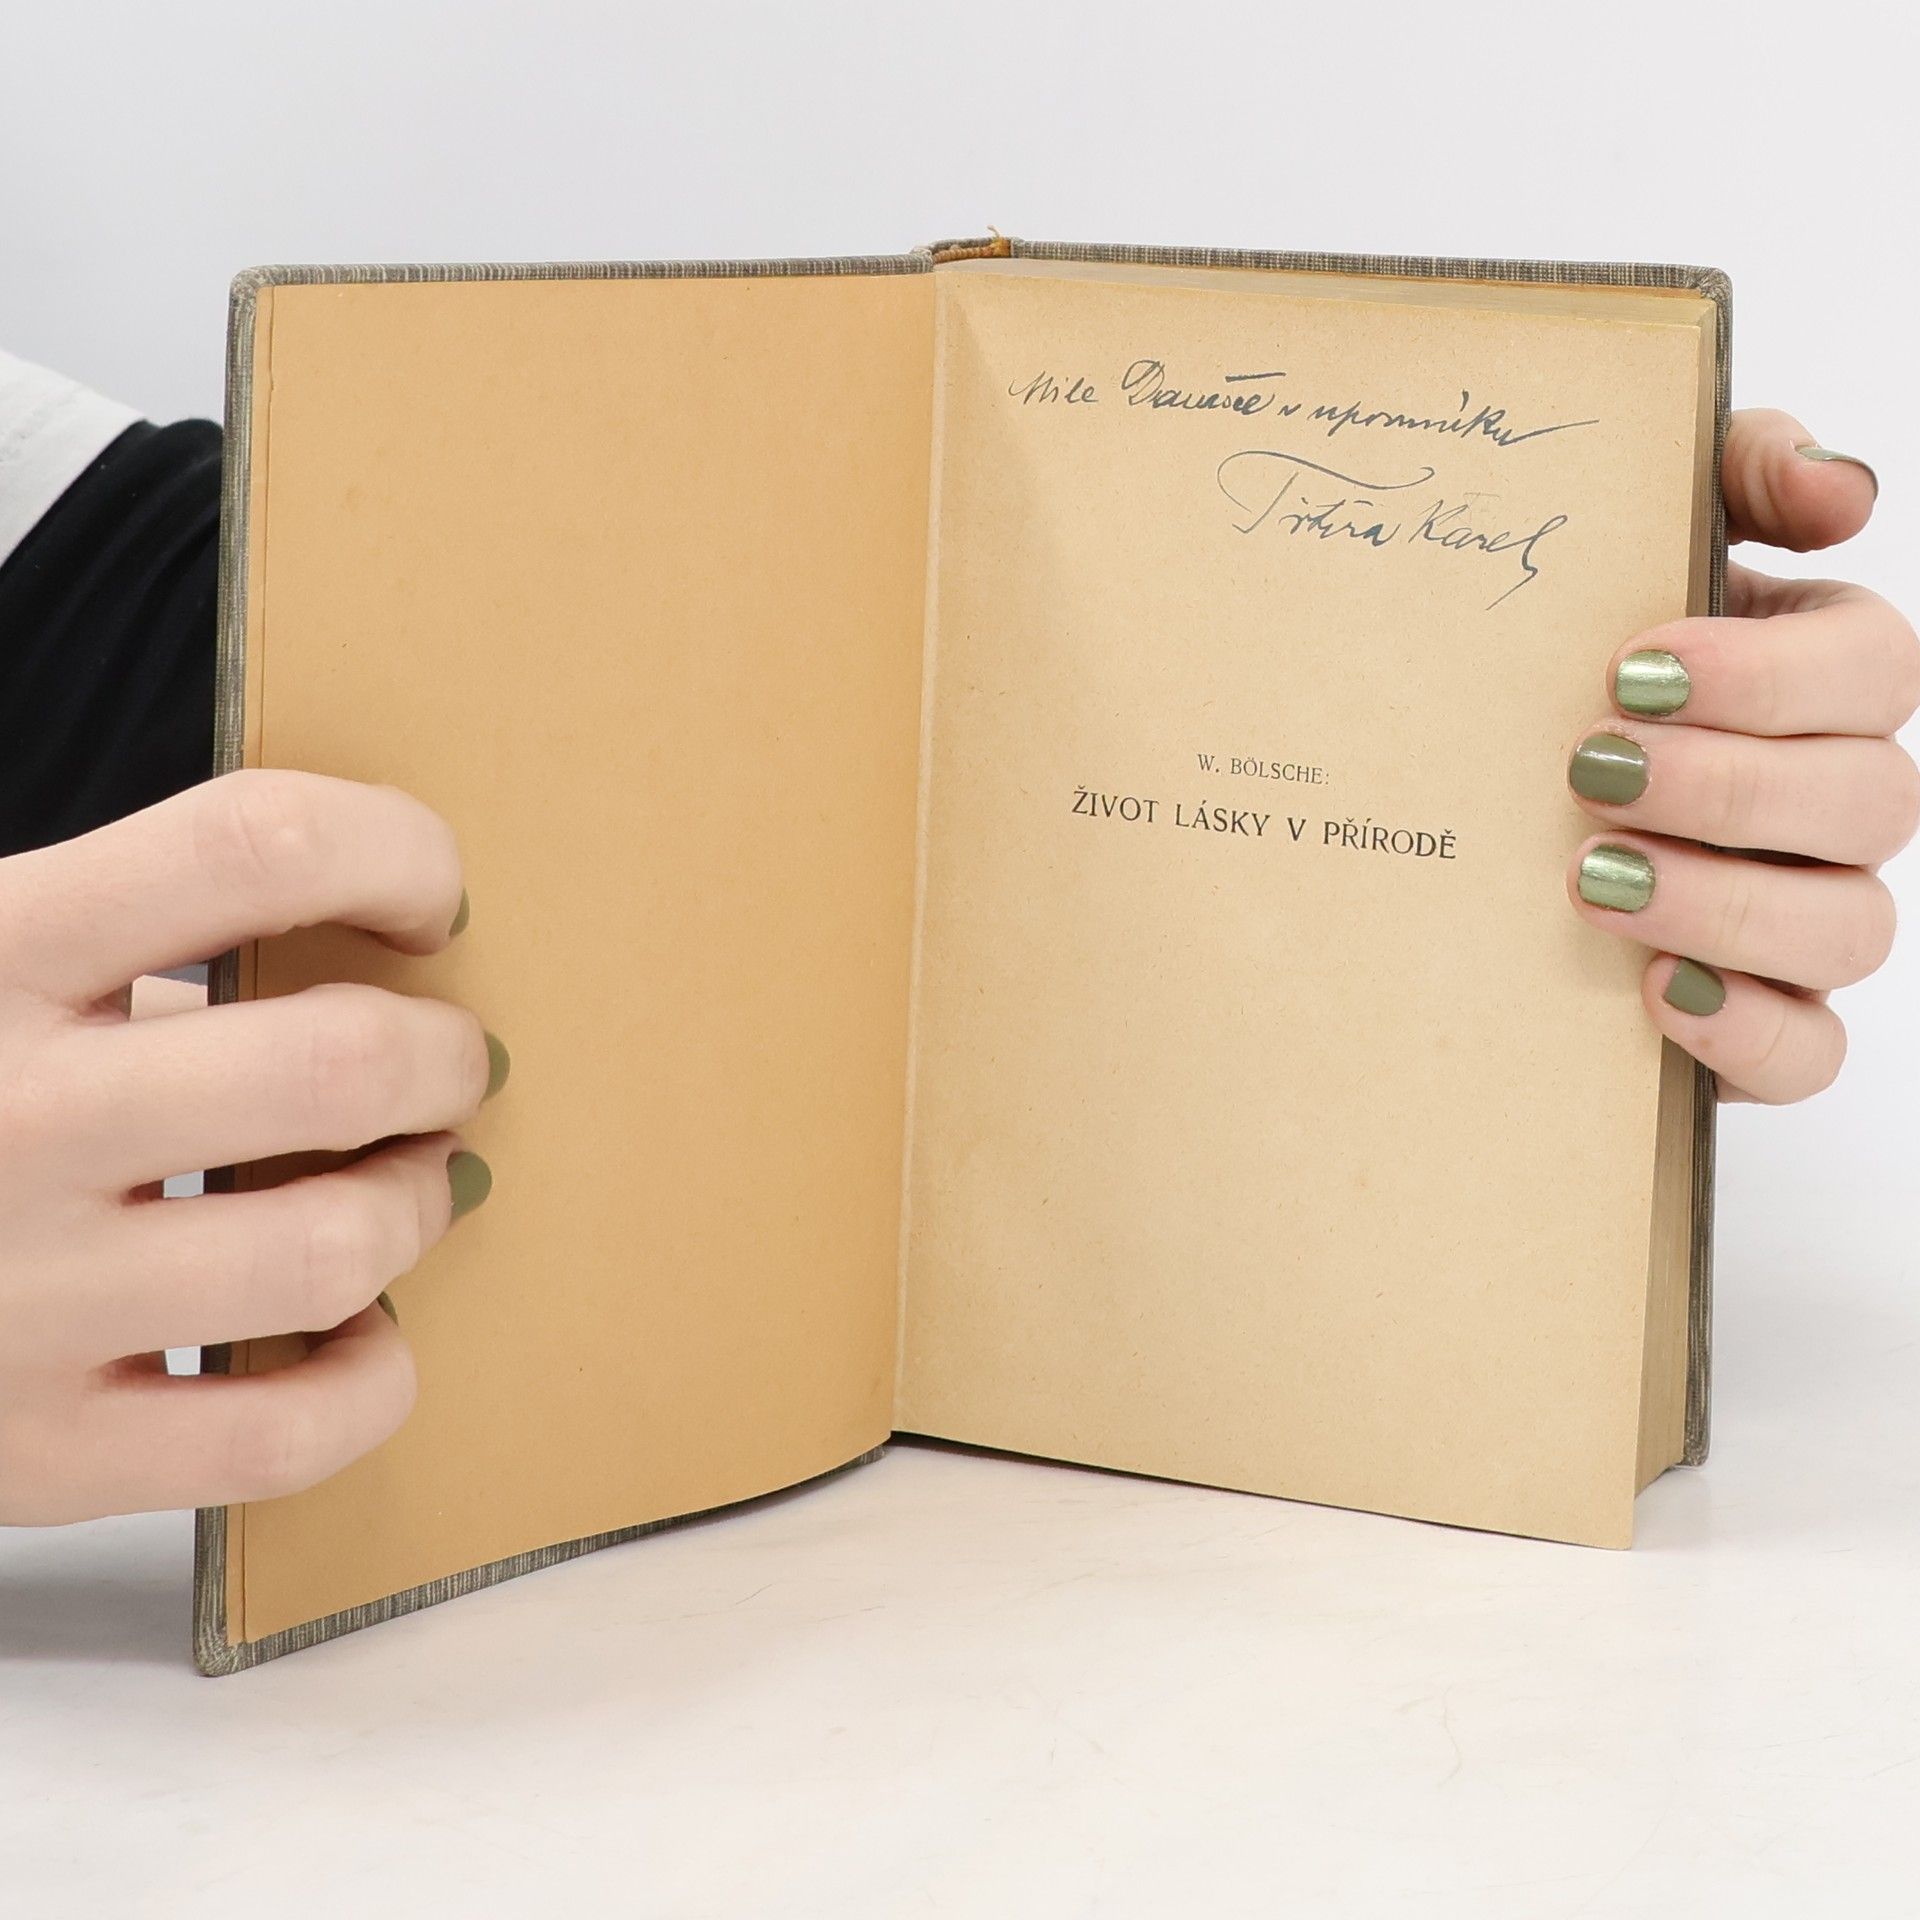 Mile Danušce v upomínku
Karel
W. BÖLSCHE:
ŽIVOT LÁSKY V PŘÍRODĚ